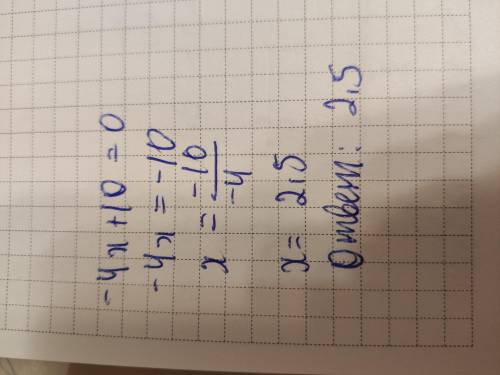 -4x+10=0
-4x=-10
x=-10/-4
x=2,5
Ответ: 2,5